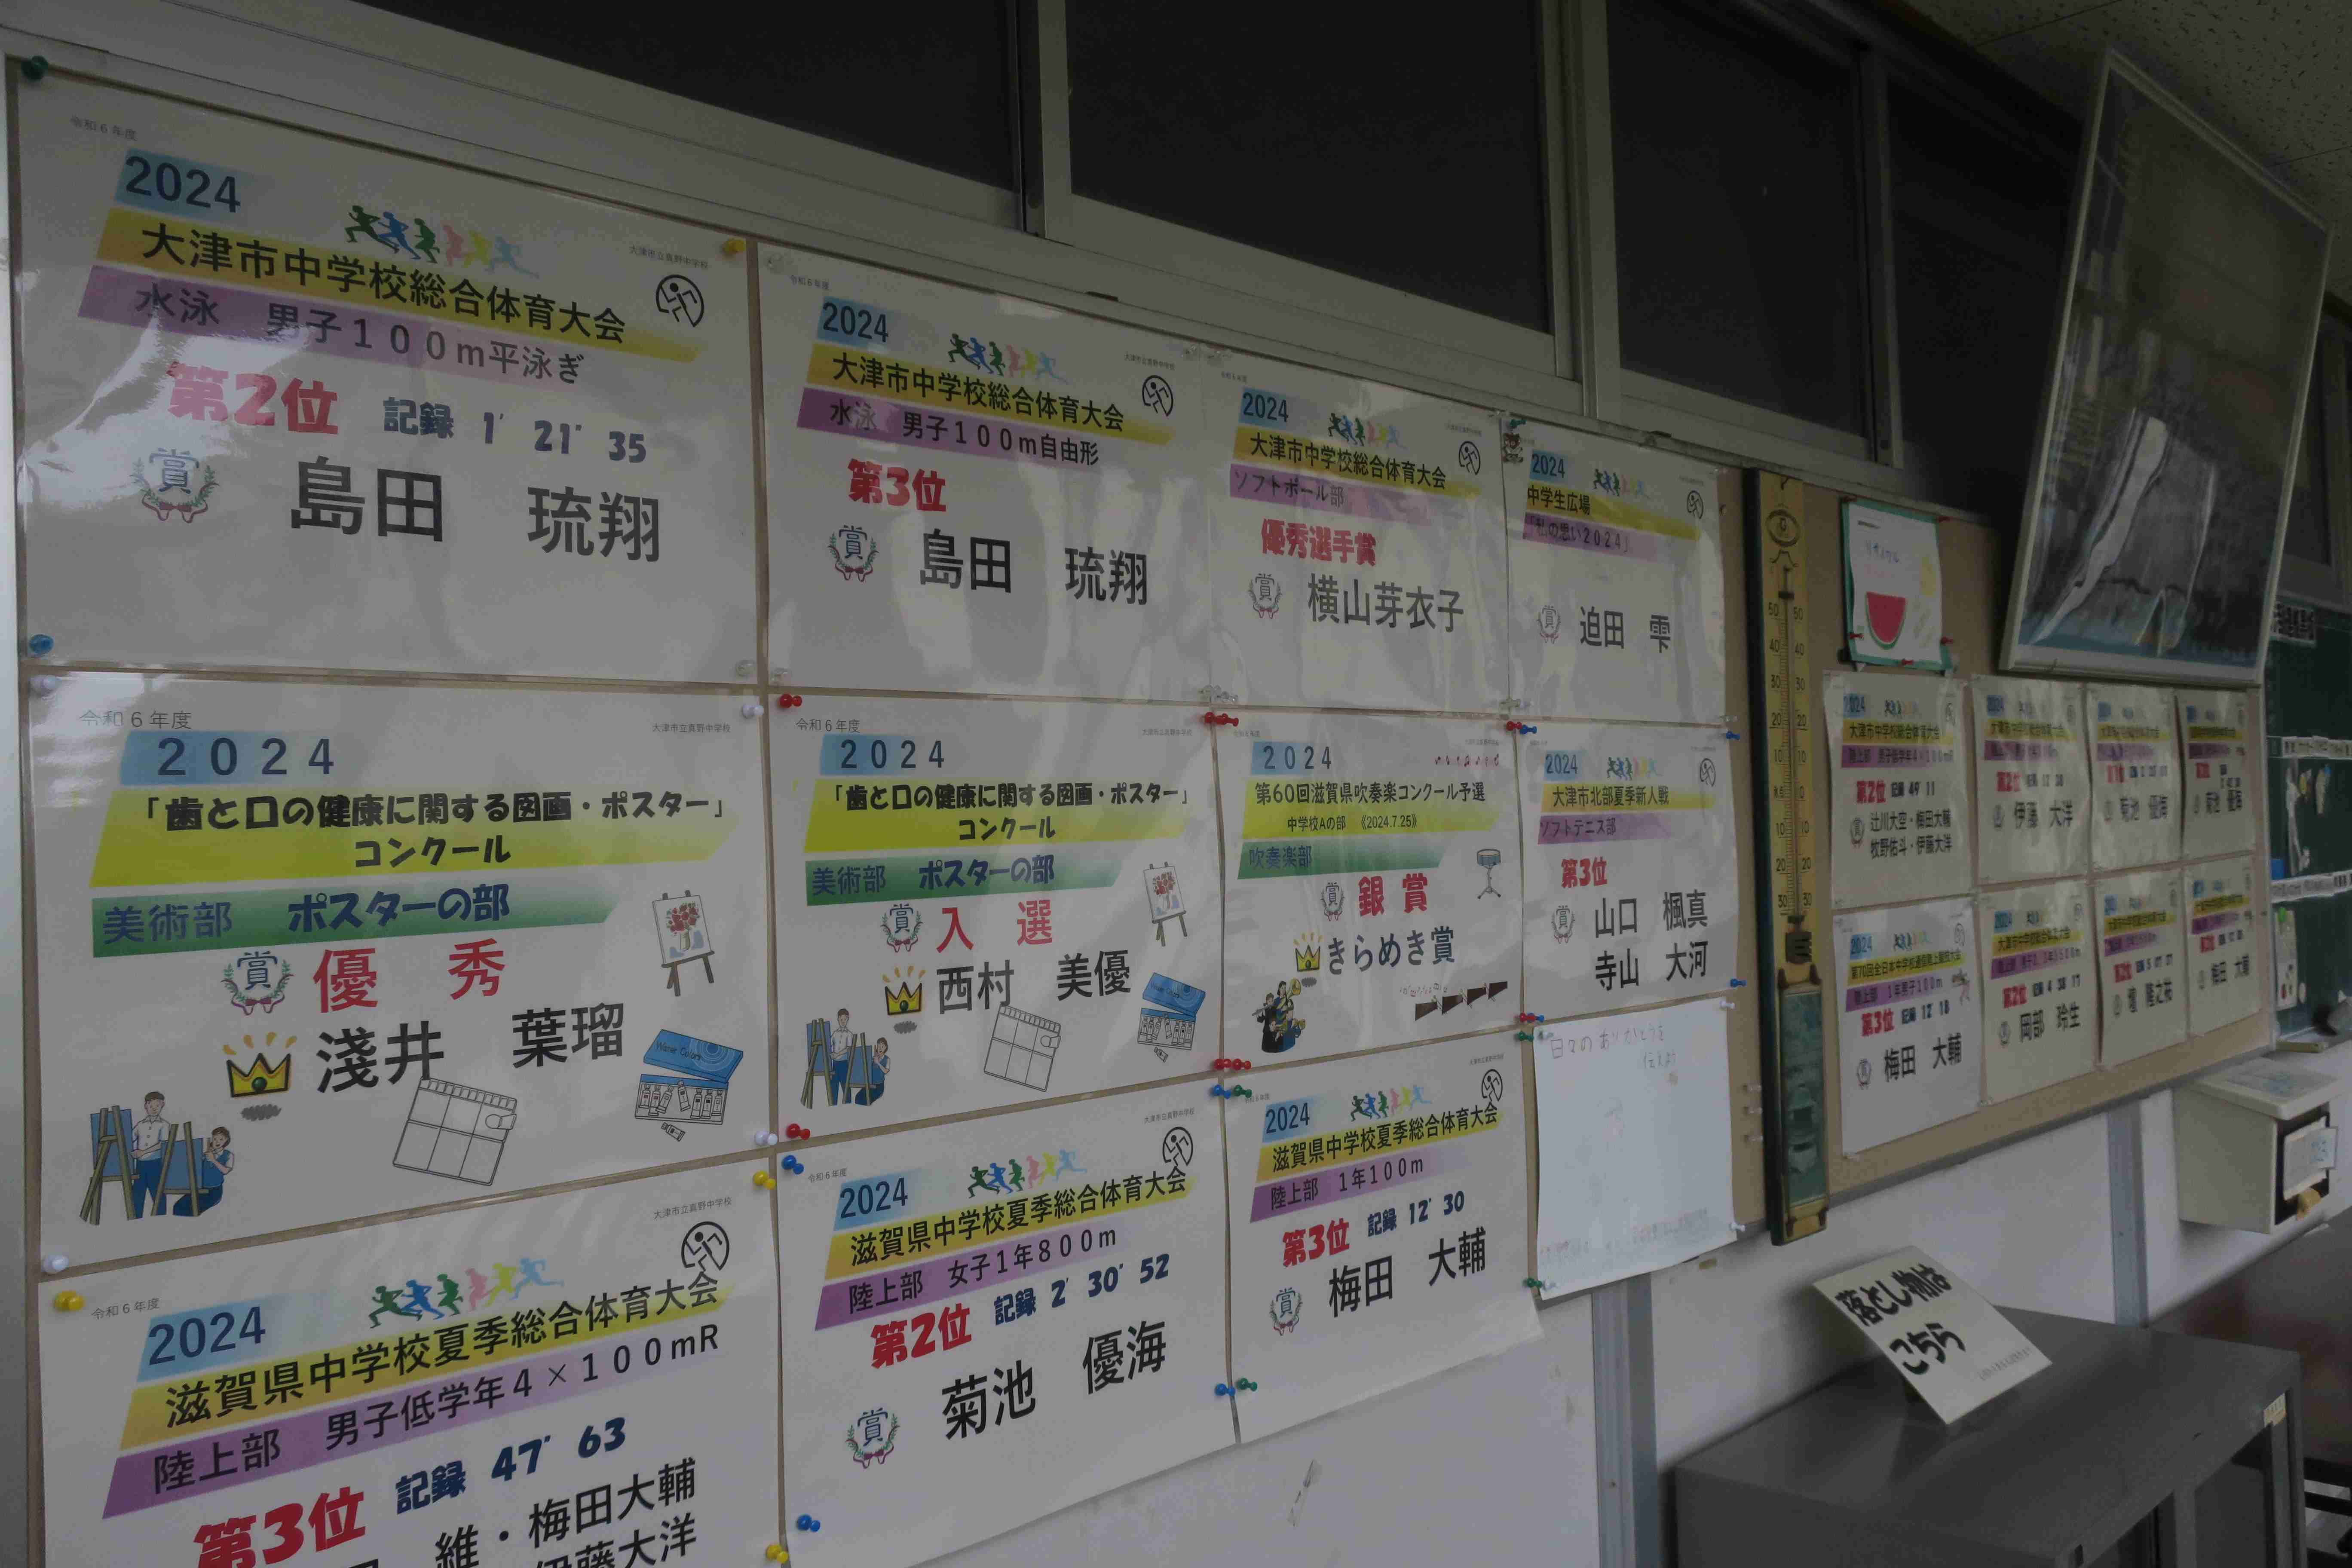 令和6年度
大津市立真野中学校
2024
大津市中学校総合体育大会
水泳　男子100m平泳ぎ
第2位　記録 1' 21' 35
賞
島田　琉翔
令和6年度
大津市立真野中学校
2024
大津市中学校総合体育大会
水泳　男子100m自由形
第3位
賞
島田　琉翔
2024
大津市中学校総合体育大会
ソフトボール部
優秀選手賞
賞
横山芽衣子
2024
中学生広場
「私の思い2024」
賞
迫田　雫
令和6年度
大津市立真野中学校
2024
「歯と口の健康に関する図画・ポスター」
コンクール
美術部　ポスターの部
賞　優　秀
淺井　葉瑠
令和6年度
大津市立真野中学校
2024
「歯と口の健康に関する図画・ポスター」
コンクール
美術部　ポスターの部
賞　入　選
西村　美優
2024
第60回滋賀県吹奏楽コンクール予選
中学校Aの部　《2024.7.25》
吹奏楽部
賞　銀賞
きらめき賞
2024
大津市北部夏季新人戦
ソフトテニス部
第3位
賞
山口　楓真
寺山　大河
令和6年度
大津市立真野中学校
2024
滋賀県中学校夏季総合体育大会
陸上部　男子低学年4×100mR
第3位　記録 47' 63
維・梅田大輔
伊藤大洋
令和6年度
大津市立真野中学校
2024
滋賀県中学校夏季総合体育大会
陸上部　女子1年800m
第2位　記録 2' 30' 52
賞
菊池　優海
2024
滋賀県中学校夏季総合体育大会
陸上部　1年100m
第3位　記録 12' 30
賞
梅田　大輔
日々のありがとうを
伝えよう
50 50
40 40
30 30
20 20
10 10
10 10
20 20
30 30
2024
大津市中学校総合体育大会
第2位　記録 49 11
辻川大空・梅田大輔
牧野佑斗・伊藤大洋
2024
大津市中学校総合体育大会
第2位
伊藤　大洋
菊池　優海
菊池　優海
2024
第70回全日本中学校通信陸上競技大会
陸上部　1年男子100m
第3位　記録 12' 18
梅田　大輔
2024
大津市中学校総合体育大会
第2位　記録 4 38 17
岡部　玲生
梅田　大輔
落とし物は
こちら